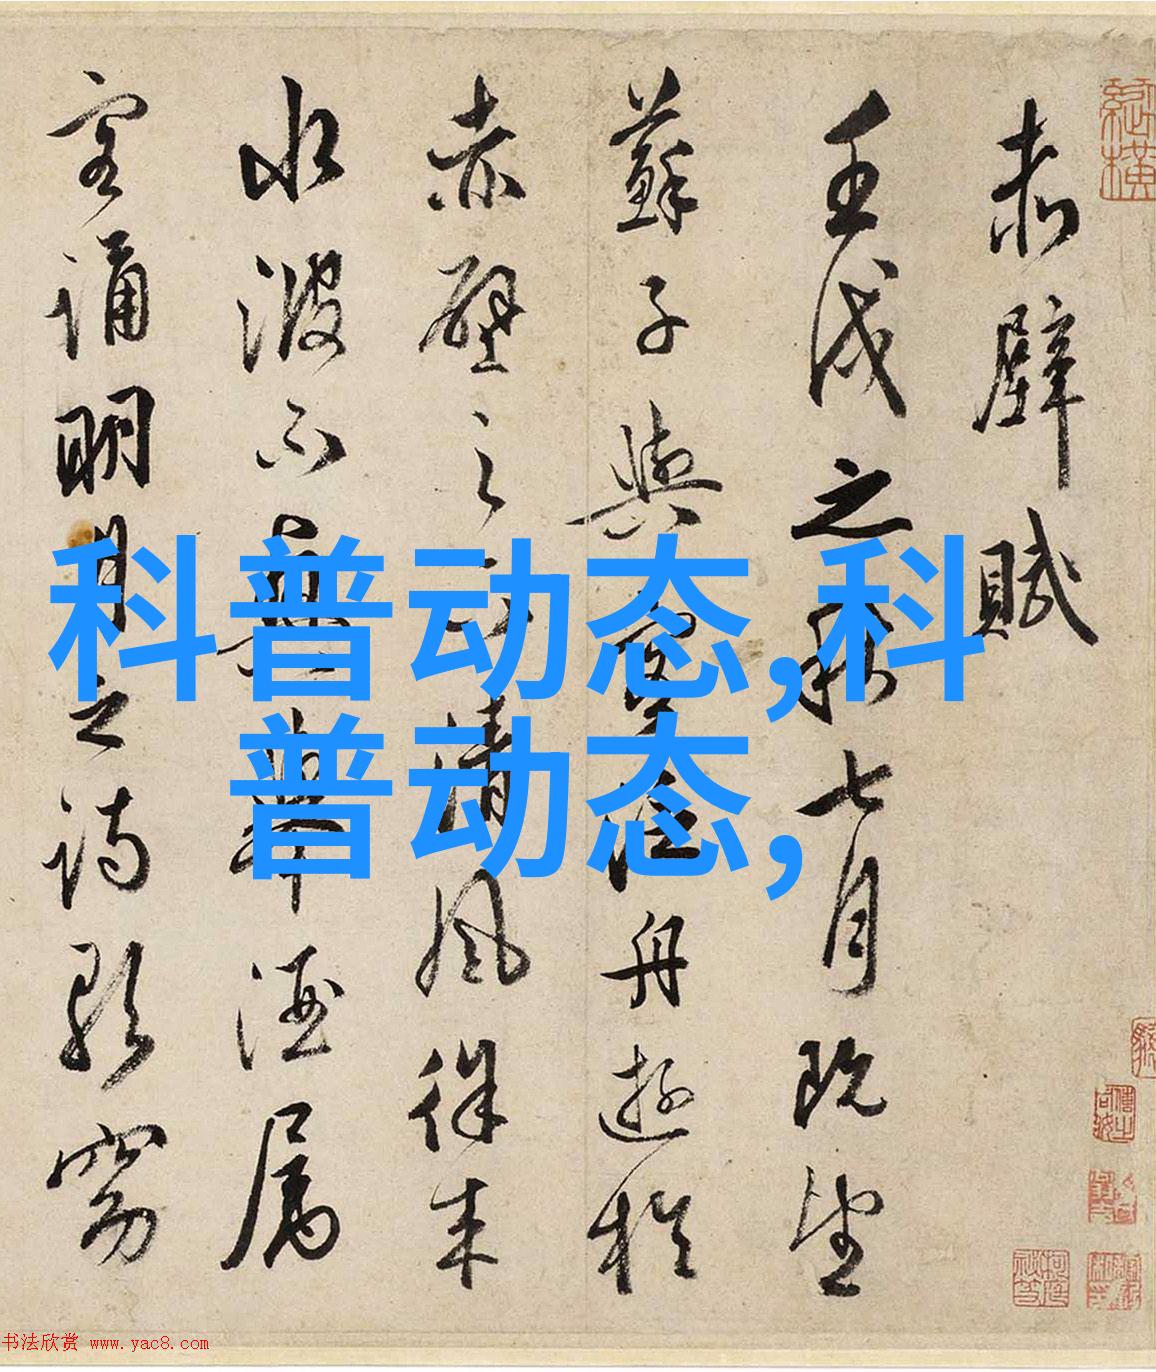 赤壁賦
壬戌之秋七月既望
蘇子與客泛舟遊於
赤壁之下清風徐来
水波不興舉酒属
客誦明月之詩歌窈
科普动态,科
普动态,
书法欣赏 www.yac8.com